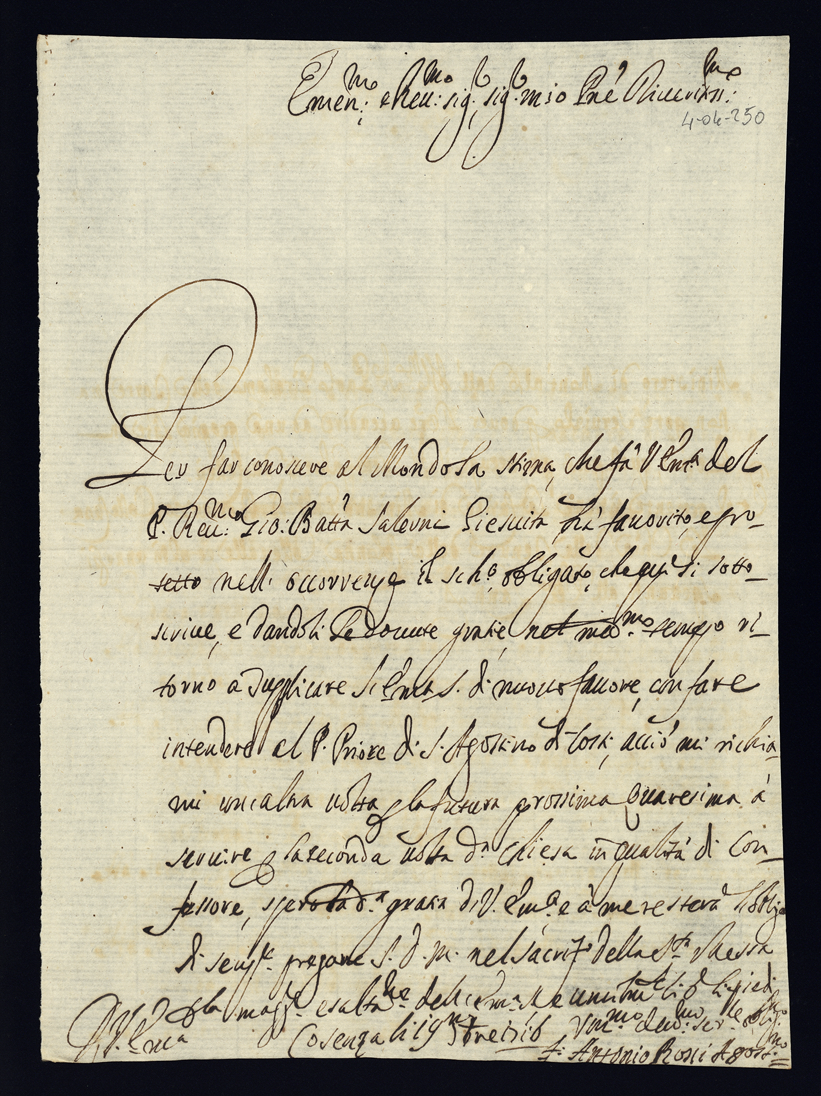 Emen:mo e Reu:mo sig: sig: mio Pne Riueritiss:mo
4-04-250
Per far conoscere al Mondo la stima, che fà V Emza del
P. Reu:mo Gio: Batta Salerni Giesuita, hà fauorito, e pro-
tetto nelle occorrenze il scho obligato, che quì si sotto-
scriue, e dandoli le douute gratie, nel med.mo tempo ri-
torno a supplicare di nuouo fauore, con fare
intendere al P. Priore di S. Agostino di acciò mi richia-
mi un'altra uolta p la futura prossima Quaresima à
seruire p la seconda uolta da Chiesa in qualità di Con-
fessore, spero la da gratia di V. Emza e à me resterà l'obligo
di sempre pregare S. D. M. nel sacrifo della Sta Messa
p la magre esaltane dell' e umilmte li piedi
Di V. Emza Cosenza li 19 1716 Vmmo deumo serre oblimo
F. Antonio Rossi Agost:no